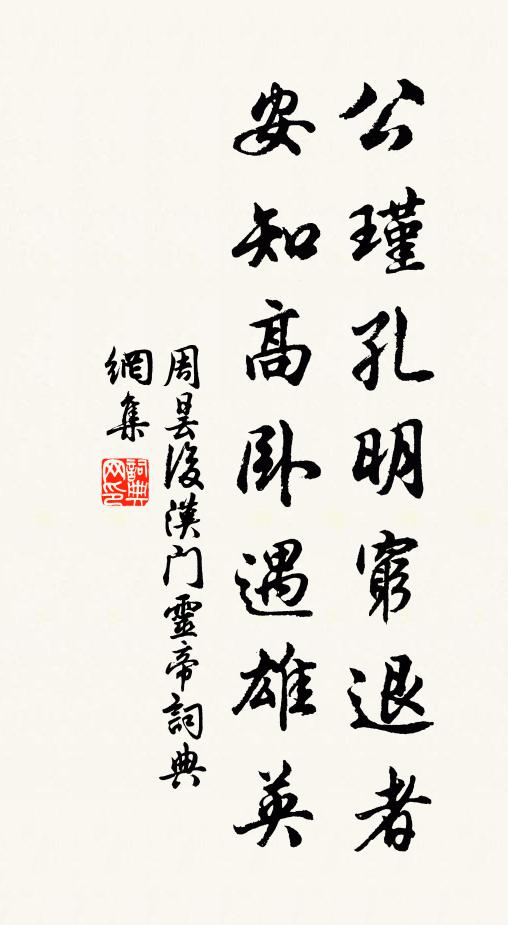 公瑾孔明窮退者
安知高卧遇雄英
周昙後漢门靈帝詞典
網集
詞典
网印